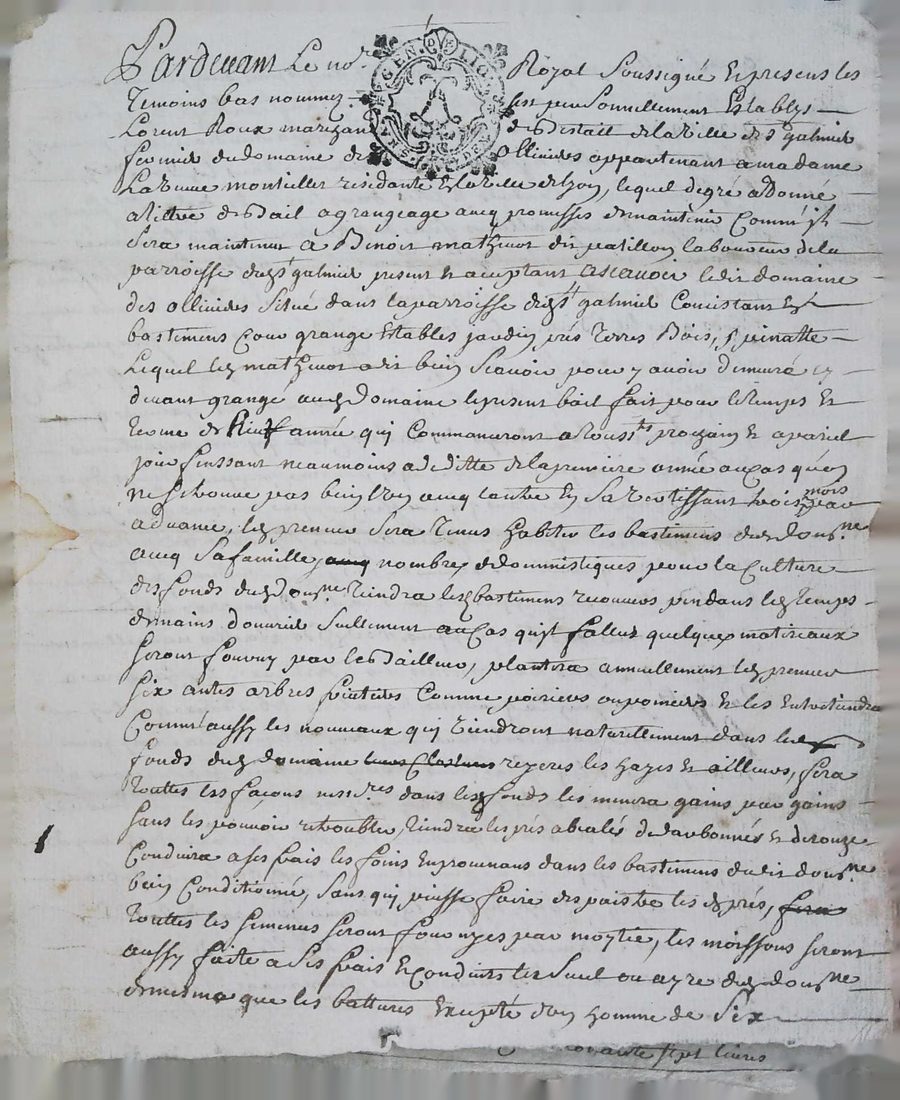 Pardevant Le no.re Royal Soussigné Et presens les
Temoins bas nommez fut personnellement Establys
Lorent Roux marchand de Bestail de la Ville de St galmier
fermier du domaine des Ollieides appartenant a madame
La Veuve residante En la Ville de Lyon, lequel de gré a Donné
a tittre de Bail a grangeage avecq promesses de maintenir Comm'jl
Sera maintenu a Benoit mathevot dit patillon laboureur de la
parroisse dud St galmier present et aceptant Ascavoir ledit domaine
des Ollieides Situé dans la parroisse dud St galmier Consistant En
bastimens Cour grange Estables jardin, prés Terres Bois,
Lequel led mathevot a dit bien Scavoir pour y avoir demeuré cy
devant granger aud Domaine le present bail fait pour le temps Et
terme de Neuf année qui Commanceront a Touss.ts prochain Et a pareil
jour finissant neaumoins a de ditte de la premiere année au Cas qu'on
ne se trouve pas bien l'un avecq l'autre En Sa vertissant trois mois par
advance, led preneur Sera tenus habiter les bastimens dud dom.ne
avecq Sa famille, nombre de dommistiques pour la Culture
des fonds dud Dom.ne Tiendra lesd bastimens recouvers pendans led temps
de mains d'ouvrie Seullement au Cas qu'jl fallut quelques matereaux
Seront fourny par led Bailleur, plantera annuellement led preneur
Six antes arbres fruitiers Comme poiriers ou pomiers Et les Entretiendra
Comm'aussy les nouveaux qui Viendront naturellement dans les
fonds dud domaine les hayes Et ailleurs, fera
Touttes les façons ness.res dans lesd fonds les menera gains par gains
Sans les pouvoir retoubler, tiendra les prés
Conduira a Ses frais les foins En provenans dans les bastimens dudit dom.ne
bien Conditionné, Sans qui puisse faire despaistre lesd prés,
Touttes les Semences Seront fournyes par moytié, les moissons Seront
aussy faite a Ses frais Et Conduits led Suel ou ayre dud dom.ne
de mesme que les battures Excepté d'un homme de Six
sept livres